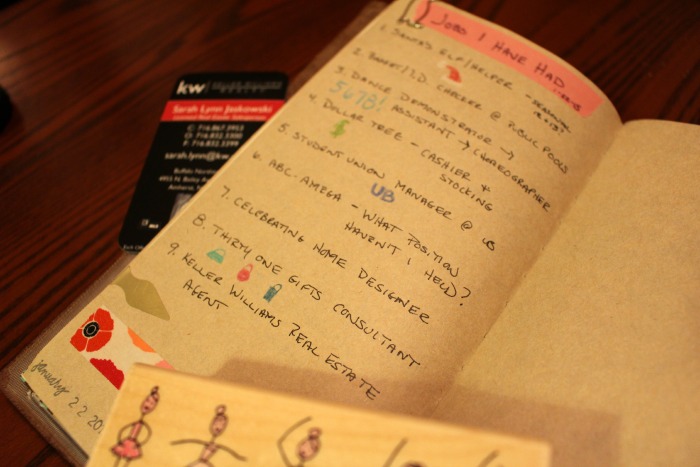 JOBS I HAVE HAD
1. SANTA'S ELF/HELPER - SEASONAL
2. BASKET/I.D. CHECKER @ PUBLIC POOLS
3. DANCE DEMONSTRATOR →
5678! ASSISTANT → CHOREOGRAPHER
4. DOLLAR TREE - CASHIER +
$ STOCKING
5. STUDENT UNION MANAGER @ UB
UB
6. ABC. AMEGA - WHAT POSITION
HAVEN'T I HELD?
7. CELEBRATING HOME DESIGNER
8. THIRTY ONE GIFTS CONSULTANT
9. KELLER WILLIAMS REAL ESTATE
AGENT
january 22 20
kw
Sarah Lynn Jaskowski
Licensed Real Estate Salesperson
C: 716.867.3953
O: 716.832.3300
F: 716.832.3399
sarah.lynn@kw
Buffalo Northe
4955 N. Bailey A
Amherst, N